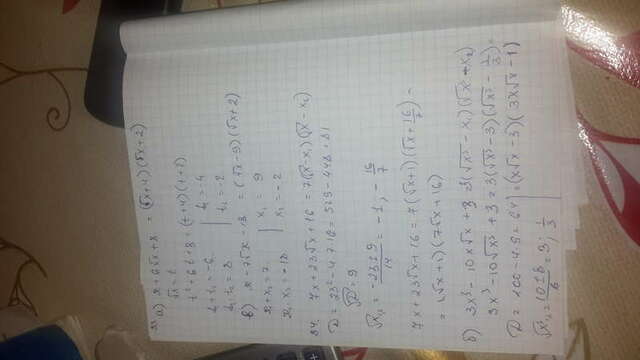 а) x + 6√x + 8 = (√x + 4)(√x + 2)
√x = t
t² + 6t + 8 = (t + 4)(t + 2)
t₁ + t₂ = -6 | t₁ = -4
t₁ t₂ = 8 | t₂ = -2
в) x - 7√x - 18 = (√x - 9)(√x + 2)
x₁ + x₂ = 7 | x₁ = 9
x₁ x₂ = -18 | x₂ = -2
34. 7x + 23√x + 16 = 7(√x - x₁)(√x - x₂)
D = 23² - 4·7·16 = 529 - 448 = 81
√D = 9
√x₁,₂ = (-23 ± 9)/14 = -1, -16/7
7x + 23√x + 16 = 7(√x + 1)(√x + 16/7) =
= (√x + 1)(7√x + 16)
б) 3x³ - 10x√x + 3 = 3(√x³ - x₁)(√x³ - x₂)
3x³ - 10√x³ + 3 = 3(√x³ - 3)(√x³ - 1/3) =
D = 100 - 4·9 = 64 | = (x√x - 3)(3x√x - 1)
√x³₁,₂ = (10 ± 8)/6 = 3, 1/3